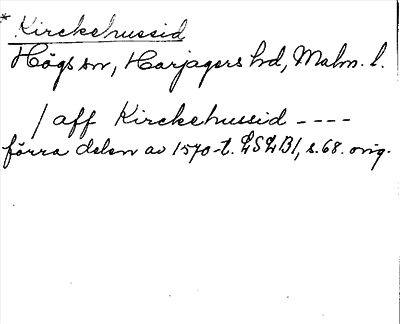 * Kirckehussid
Högs sn, Harjagers hd, Malm. l.
/ aff Kirckehussid ----
förra delen av 1570-t. LSLB1, s. 68. orig.